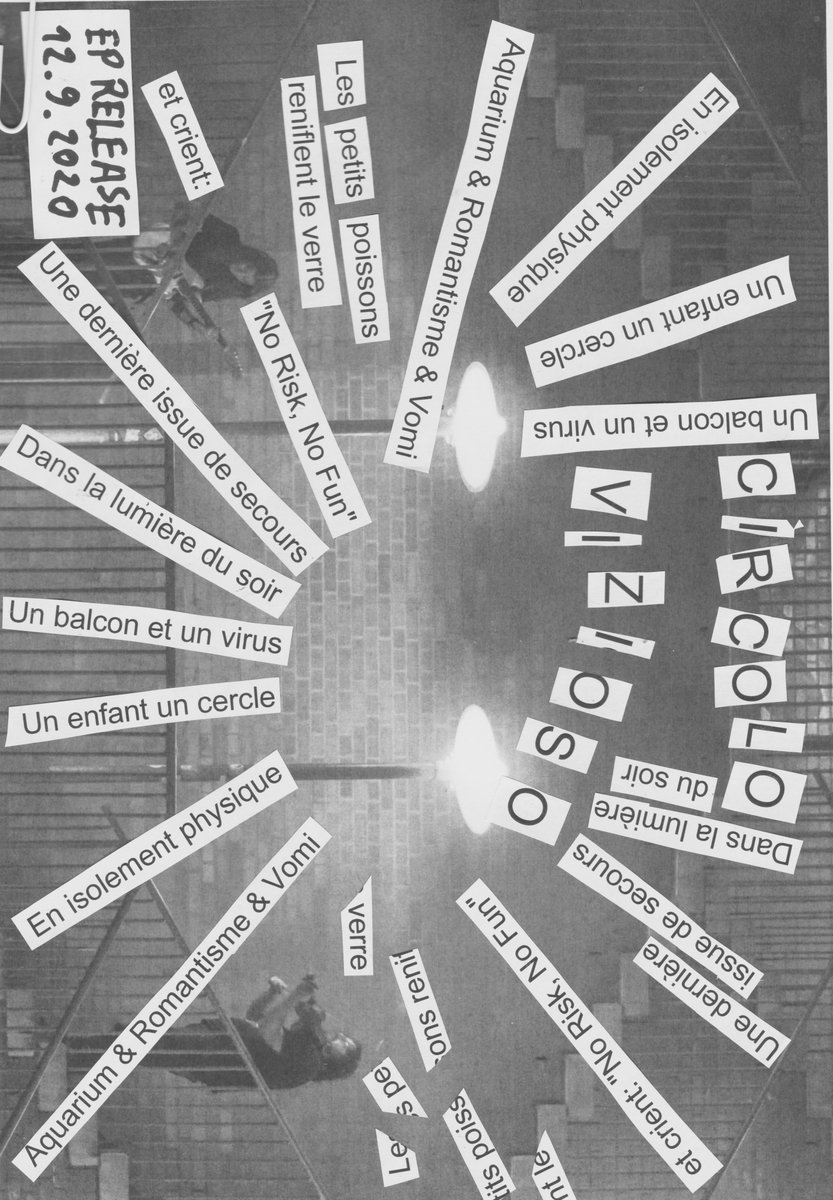 EP RELEASE
12.9.2020
CIRCOLO
VIZIOSO
Aquarium & Romantisme & Vomi
En isolement physique
Un enfant un cercle
Un balcon et un virus
Dans la lumière
du soir
Une dernière
issue de secours
et crient: "No Risk, No Fun"
Les petits poissons
reniflent le verre
et crient:
"No Risk, No Fun"
Une dernière issue de secours
Dans la lumière du soir
Un balcon et un virus
Un enfant un cercle
En isolement physique
Aquarium & Romantisme & Vomi
Le
s pe
tits poiss
ons reni
nt le
verre